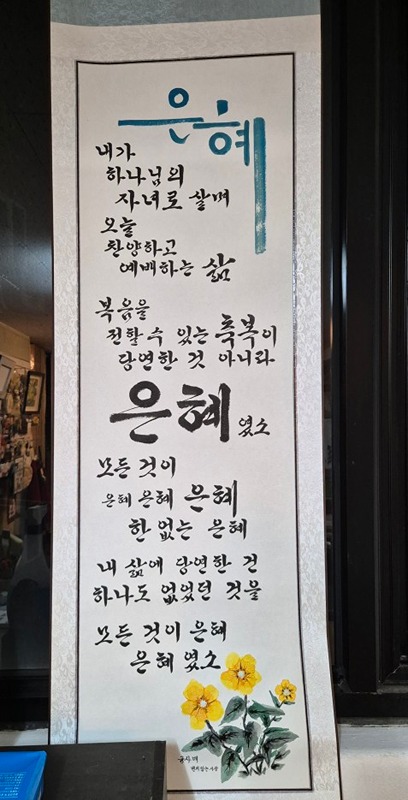 은혜
내가
하나님의
자녀로 살며
오늘
찬양하고
예배하는 삶
복음을
전할 수 있는 축복이
당연한 것 아니라
은혜 였소
모든 것이
은혜 은혜 은혜
한 없는 은혜
내 삶에 당연한 건
하나도 없었던 것을
모든 것이 은혜
은혜 였소